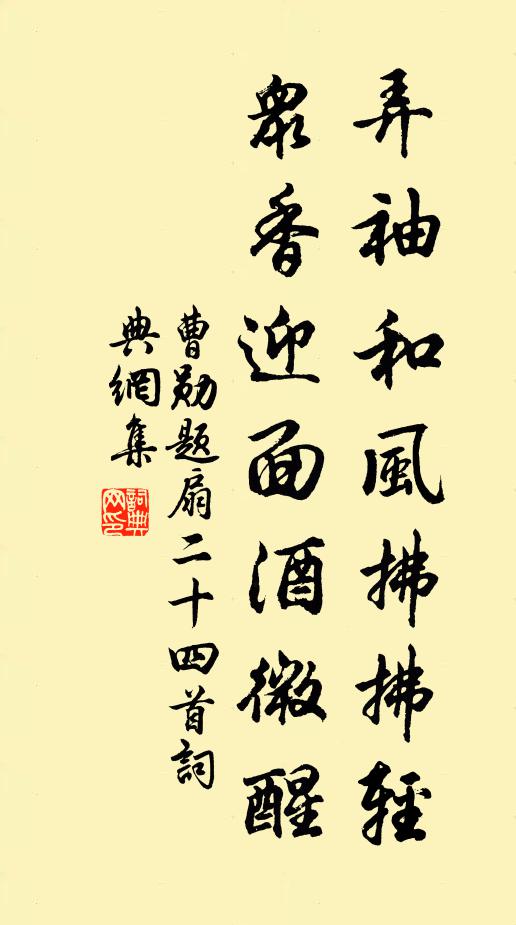 弄袖和風拂拂輕
眾香迎面酒微醒
曹勛題扇二十四首詞
典網集
詞典網印